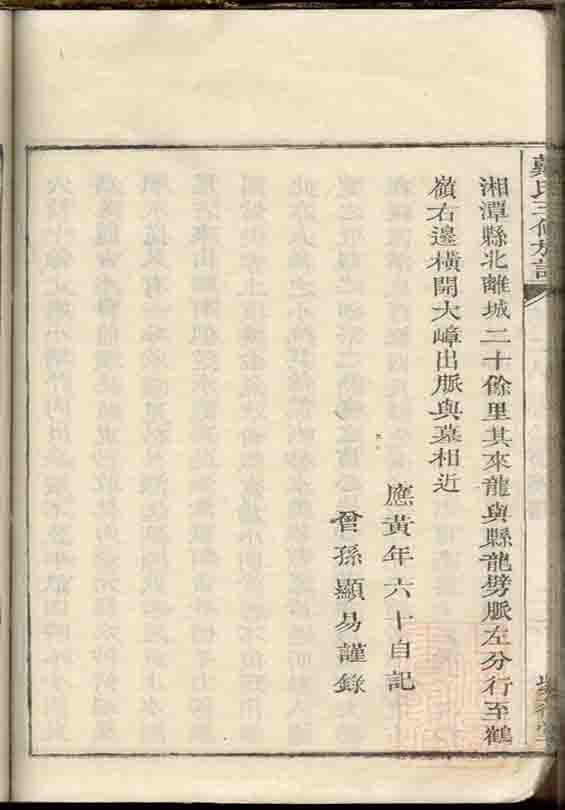 湘潭縣北離城二十餘里其來龍與縣龍劈脈左分行至鶴
嶺右邊橫開大嶂出脈與墓相近
應黃年六十自記
曾孫顯易謹錄